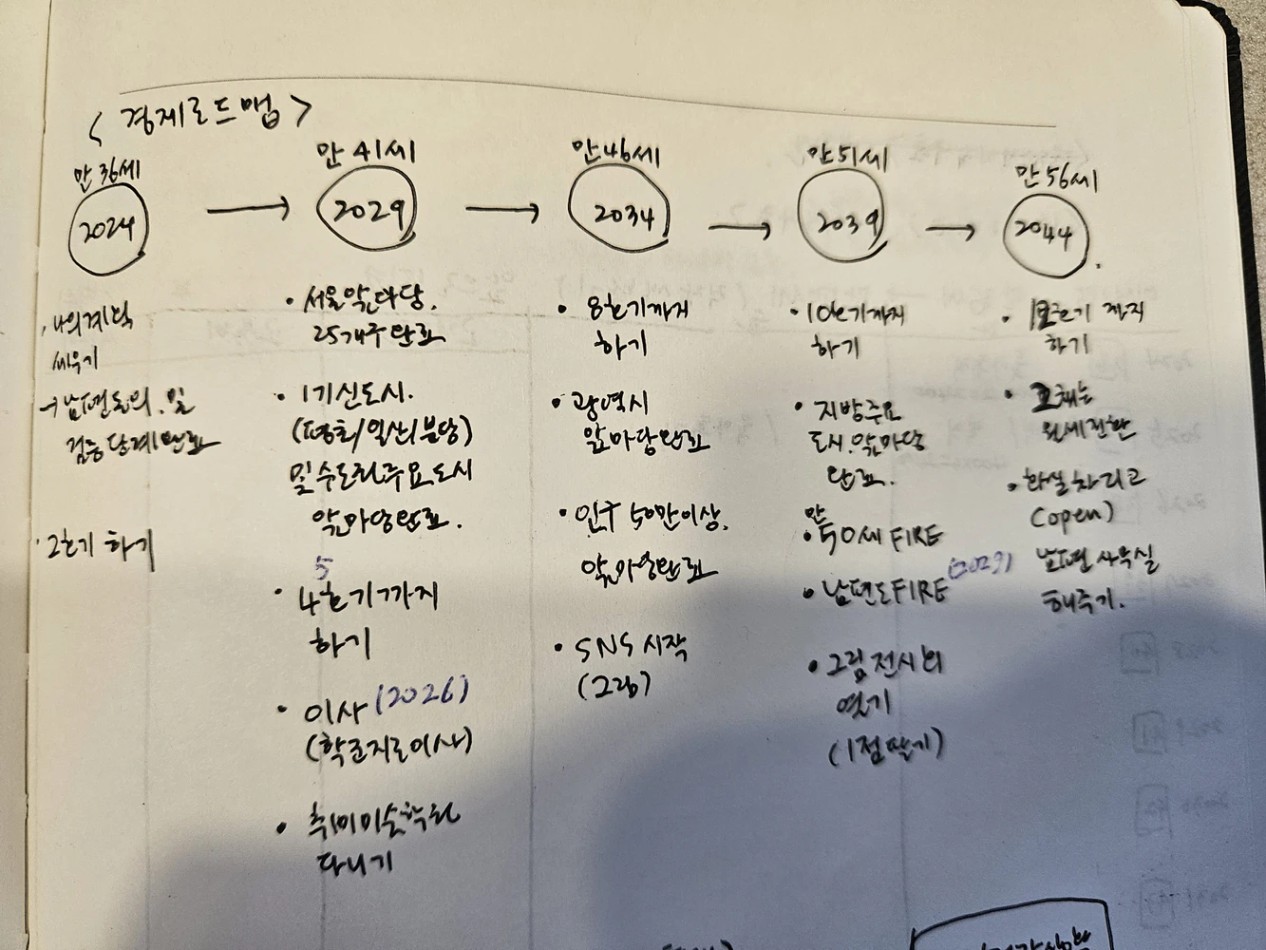 <경제로드맵>
만 36세
2024
나의계획
세우기
→ 남편동의. 및
검증단계완료
• 2호기 하기
만 41세
2029
• 서울앞마당.
25개구완료
• 1기신도시.
(평촌/일산/분당)
및 수도권주요도시
앞마당완료.
5
• 4호기까지
하기
• 이사 (2026)
(학군지로이사)
• 취미미술학원
다니기
만 46세
2034
• 8호기까지
하기
• 광역시
앞마당완료
• 인구 50만이상.
앞마당완료
• SNS 시작
(그림)
만 51세
2039
• 10호기까지
하기
• 지방주요
도시.앞마당
완료.
만
• 50세 FIRE
• 남편도FIRE (2039)
• 그림전시회
열기
(1점팔기)
만 56세
2044
• 12호기 까지
하기
• 월세전환
• 화실차리고
(open)
남편사무실
해주기.